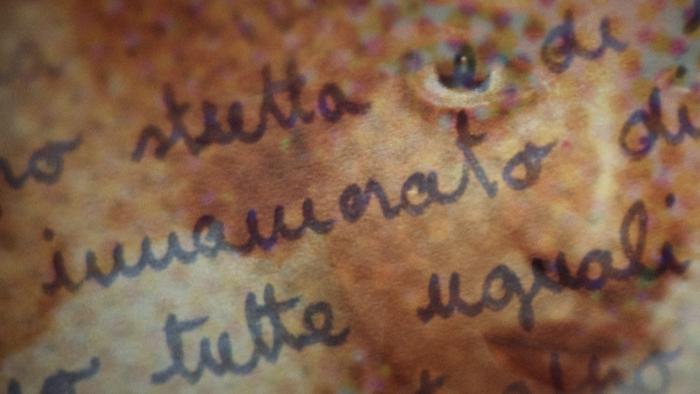 stretta e di
innamorato di
tutte uguali